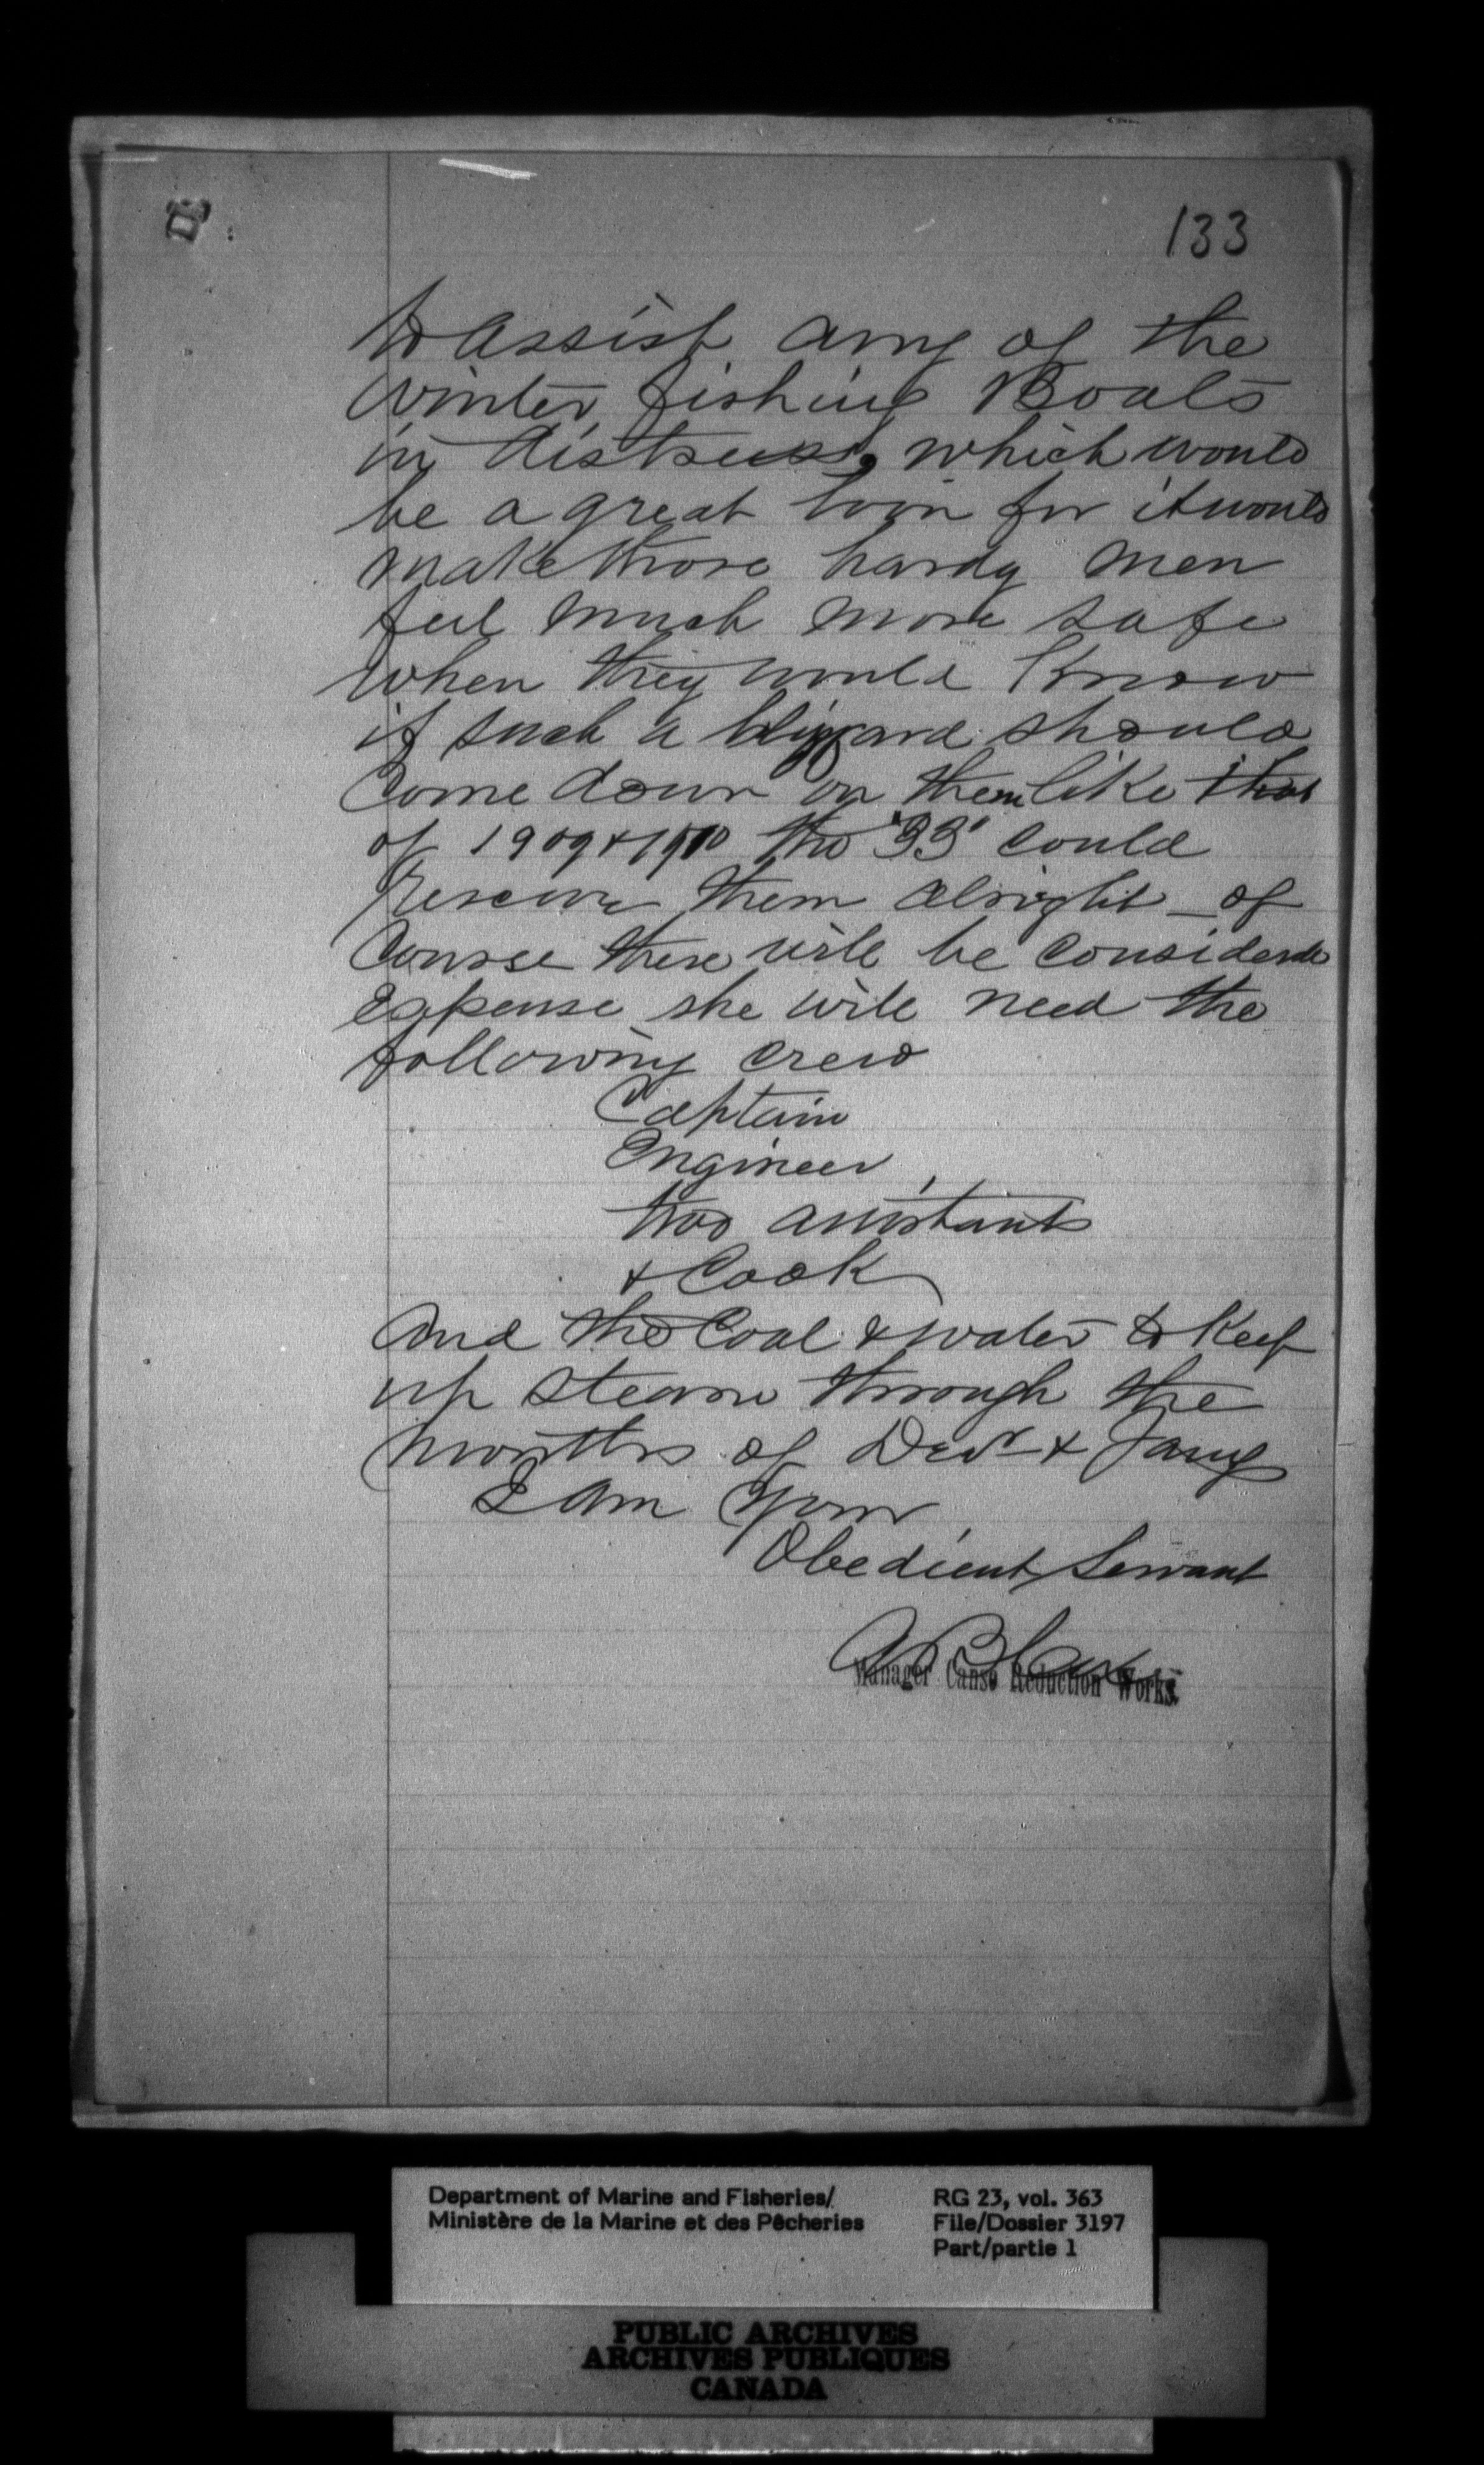 133
to assist any of the
winter fishing Boats
in distress, which would
be a great boon for it would
make those hardy men
feel much more safe
when they would Know
if such a blizzard should
Come down on them like that
of 1909 & 1910 the "33" could
rescue them alright — of
Course there will be considerable
expense she will need the
following crew
Captain
Engineer
two assistants
& Cook
And the Coal & water to Keep
up steam through the
months of Decr & Jany
I am Your
Obedient Servant
Manager Canso Reduction Works.
Department of Marine and Fisheries/
Ministère de la Marine et des Pêcheries
RG 23, vol. 363
File/Dossier 3197
Part/partie 1
PUBLIC ARCHIVES
ARCHIVES PUBLIQUES
CANADA